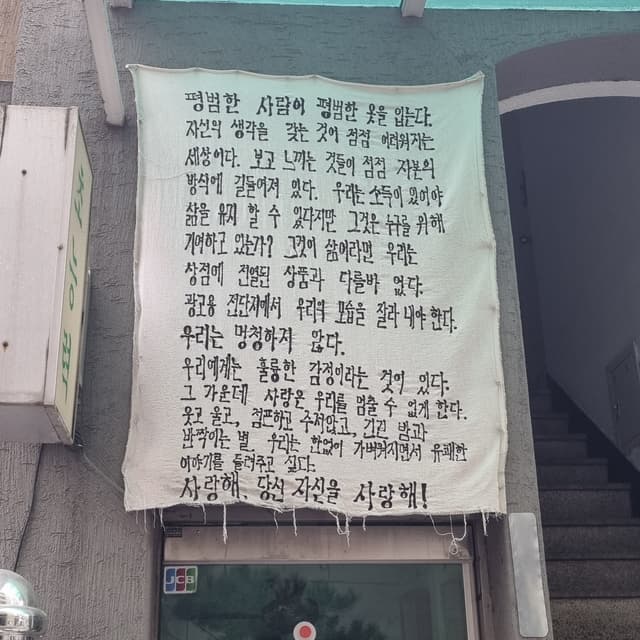 평범한 사람이 평범한 옷을 입는다.
자신의 생각을 갖는 것이 점점 어려워지는
세상이다. 보고 느끼는 것들이 점점 자본의
방식에 길들여져 있다. 우리는 소득이 있어야
삶을 유지 할 수 있다지만 그것은 누구를 위해
기여하고 있는가? 그것이 삶이라면 우리는
상점에 진열된 상품과 다를바 없다.
광고용 전단지에서 우리의 모습을 잘라 내야 한다.
우리는 멍청하지 않다.
우리에게는 훌륭한 감정이라는 것이 있다.
그 가운데 사랑은 우리를 멈출 수 없게 한다.
웃고 울고, 점프하고 주저앉고, 긴긴 밤과
반짝이는 별 우리는 한없이 가벼워지면서 유쾌한
이야기를 들려주고 싶다.
사랑해, 당신 자신을 사랑해!
JCB